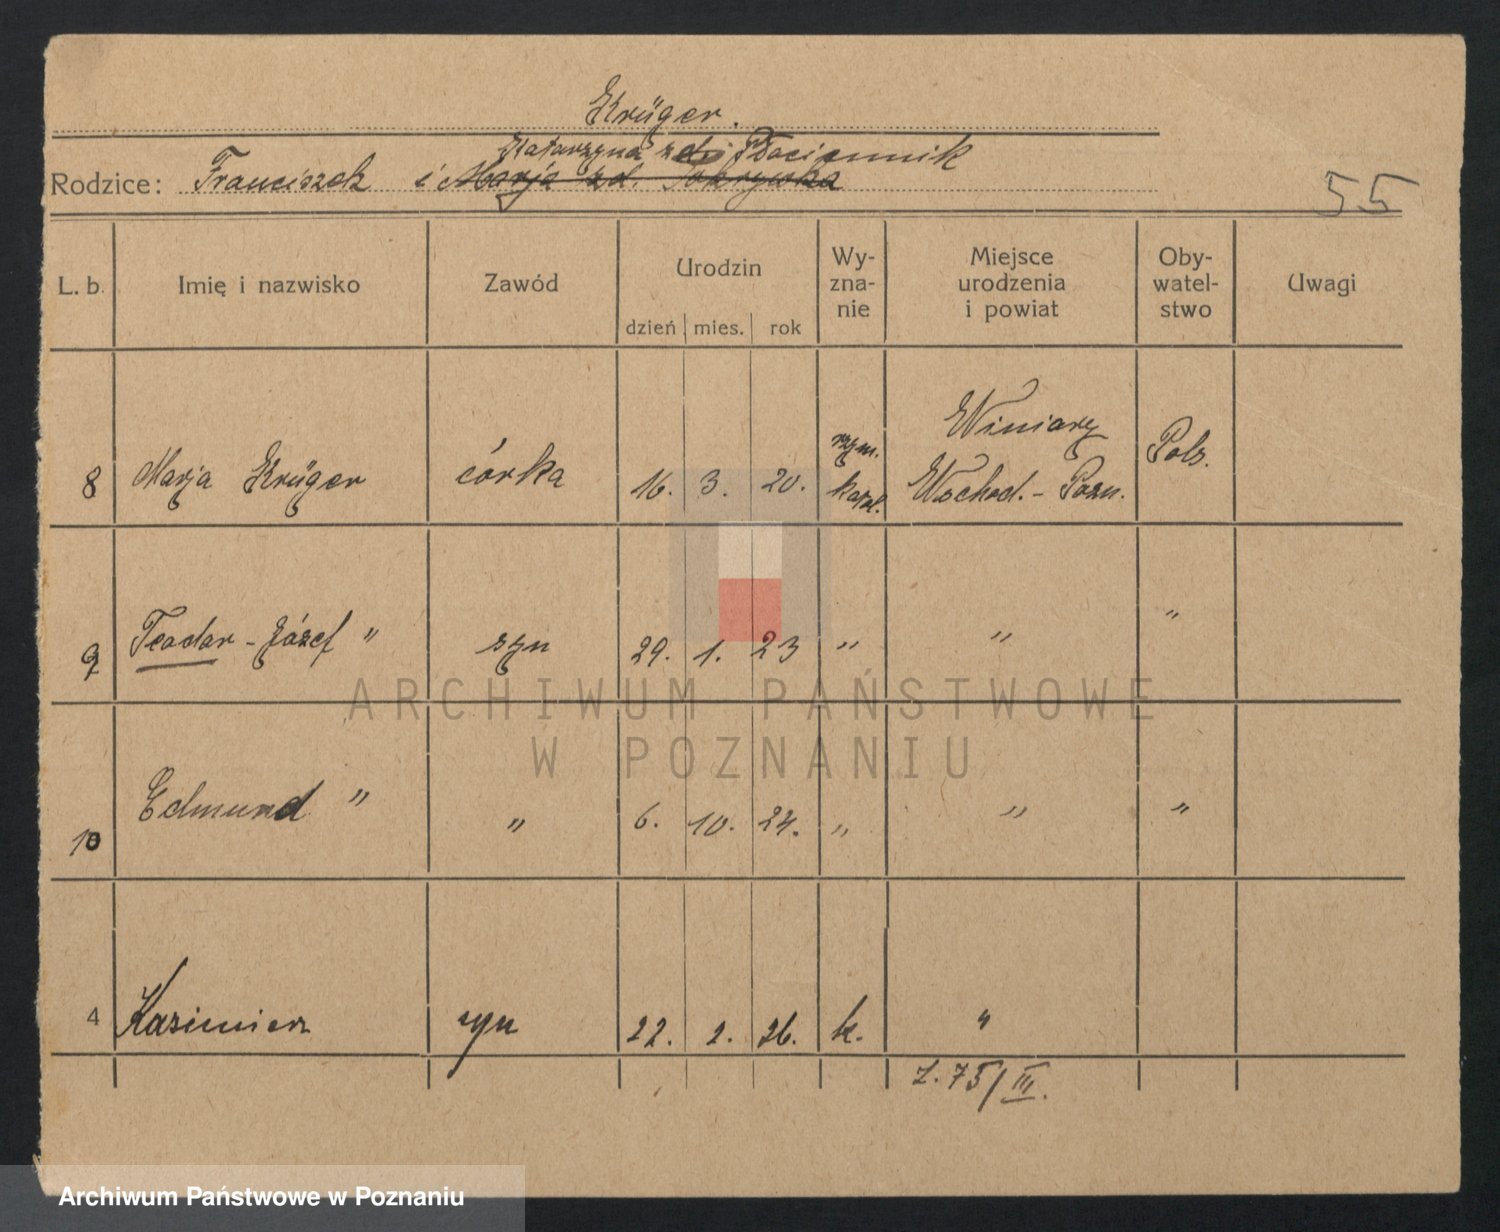 Krüger.
Katarzyna zd. Płociennik
Rodzice: Franciszek i Marja zd. Pokrywka
55
L. b. Imię i nazwisko Zawód Urodzin dzień mies. rok Wy-zna-nie Miejsce urodzenia i powiat Oby-watel-stwo Uwagi
8 Marja Krüger córka 16. 3. 20. rzym. katol. Winiary Wschod. - Pozn. Pols.
9 Teodor - Józef " syn 29. 1. 23 " " "
10 Edmund " " 6. 10. 24. " " "
4 Kazimierz syn 22. 2. 26. k. "
Z. 75/III.
ARCHIWUM PAŃSTWOWE
W POZNANIU
Archiwum Państwowe w Poznaniu